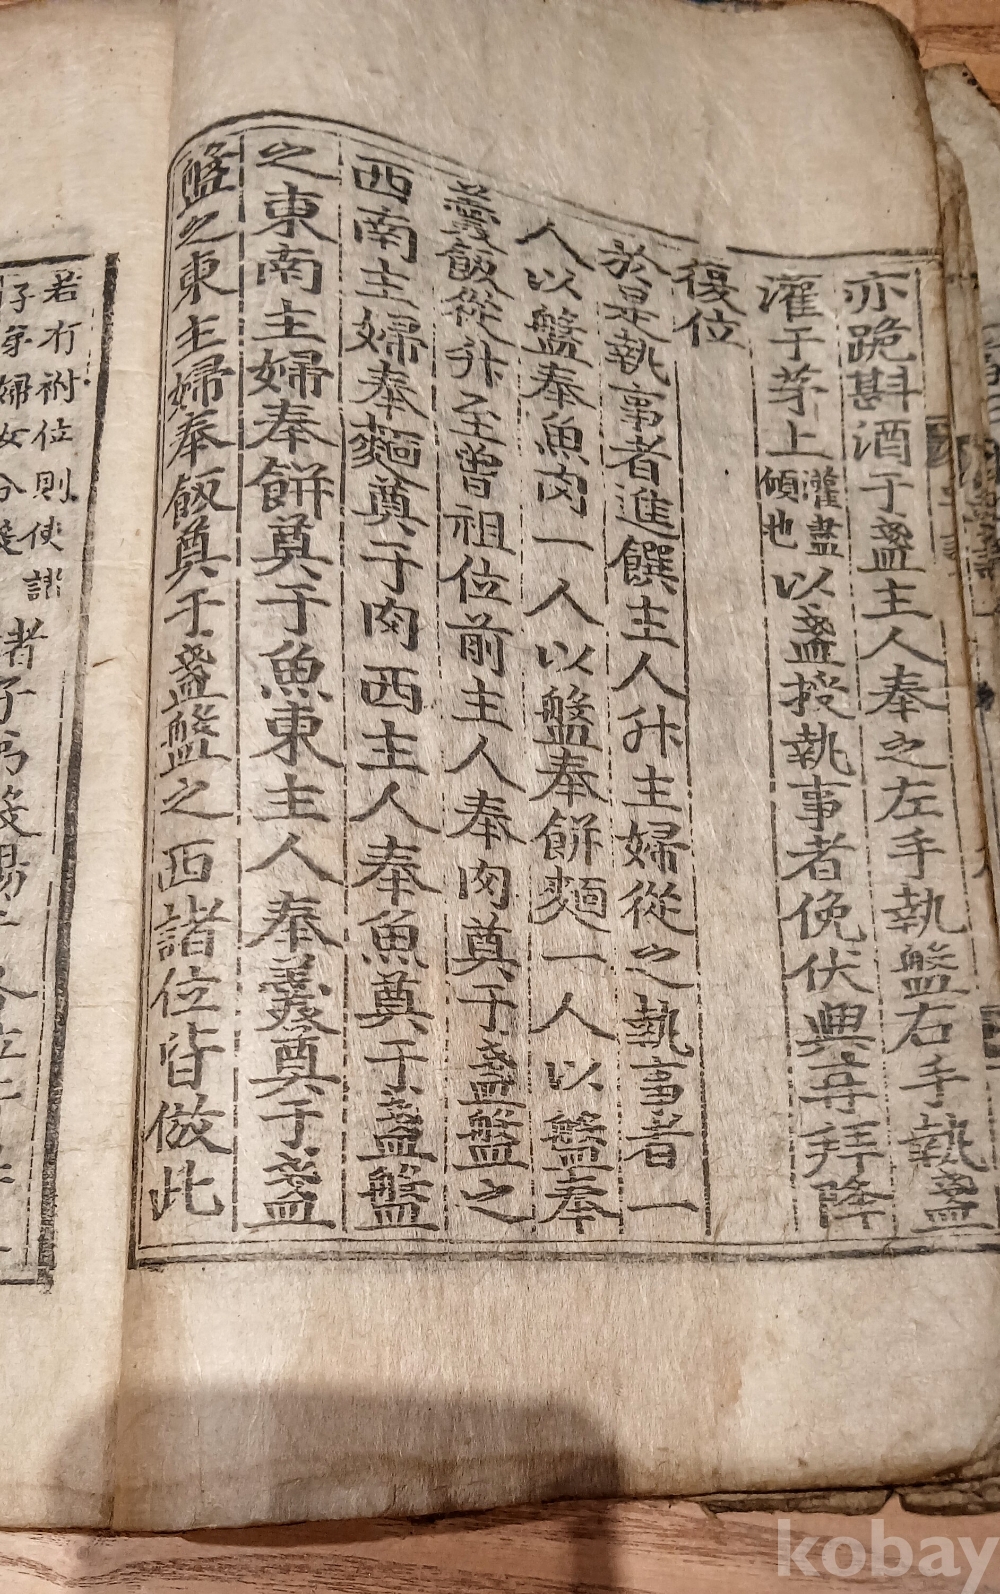 亦跪斟酒于盞主人奉之左手執盤右手執盞
灌于茅上灌盡傾也以盞授執事者俛伏興再拜降
復位
於是執事者進饌主人升主婦從之執事者一
人以盤奉魚肉一人以盤奉餅麵一人以盤奉
羹飯從升至曾祖位前主人奉肉奠于盞盤之
西南主婦奉麵奠于肉西主人奉魚奠于盞盤
之東南主婦奉餅奠于魚東主人奉羹奠于盞
盤之東主婦奉飯奠于盞盤之西諸位皆倣此
若有祔位則使諸
子弟婦女分
者
kobay